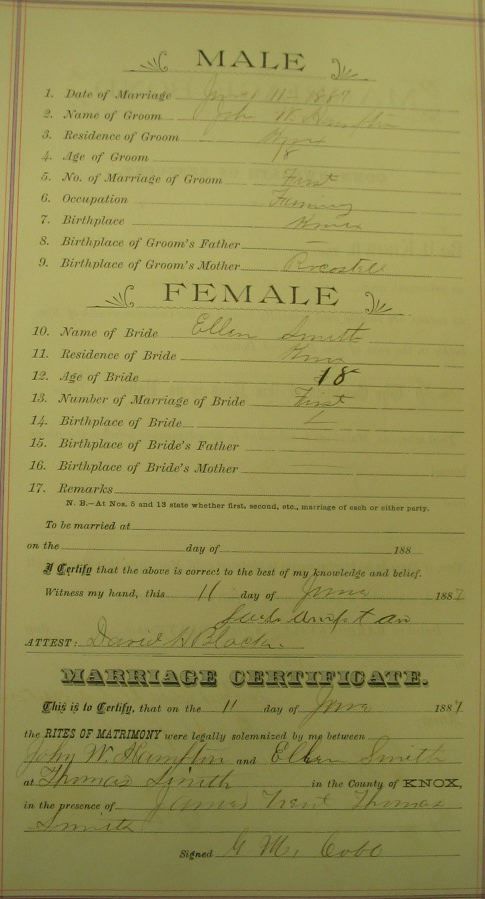 MALE
1. Date of Marriage June 11 1887
2. Name of Groom John W Hampton
3. Residence of Groom Knox
4. Age of Groom 18
5. No. of Marriage of Groom First
6. Occupation Farming
7. Birthplace Knox
8. Birthplace of Groom's Father —
9. Birthplace of Groom's Mother
FEMALE
10. Name of Bride Ellen Smith
11. Residence of Bride Knox
12. Age of Bride 18
13. Number of Marriage of Bride First
14. Birthplace of Bride
15. Birthplace of Bride's Father
16. Birthplace of Bride's Mother
17. Remarks
N. B.—At Nos. 5 and 13 state whether first, second, etc., marriage of each or either party.
To be married at
on the day of 188
I Certify that the above is correct to the best of my knowledge and belief.
Witness my hand, this 11 day of June 1887
ATTEST: David H Black
MARRIAGE CERTIFICATE.
This is to Certify, that on the 11 day of June 1887
the RITES OF MATRIMONY were legally solemnized by me between
John W. Hampton and Ellen Smith
at Thomas Smith in the County of KNOX,
in the presence of James Trent Thomas
Smith
Signed G M. Cobb